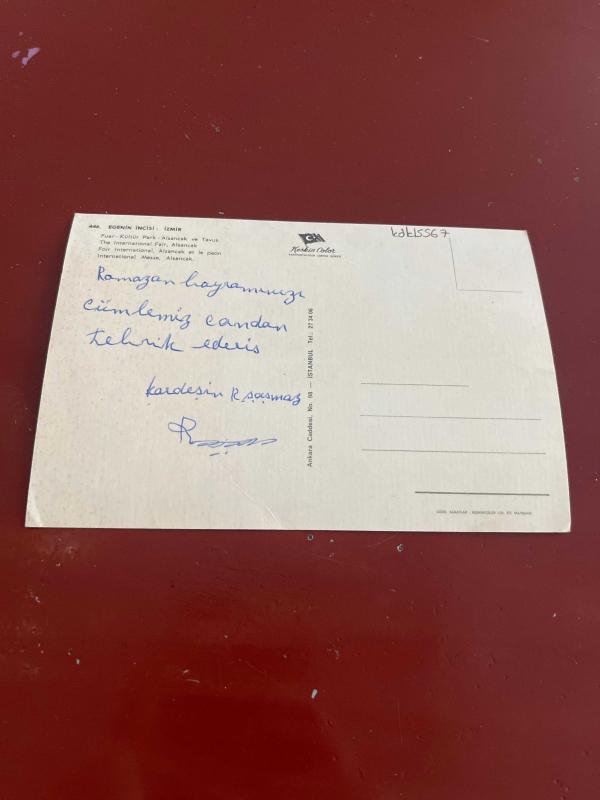 446. EGENİN İNCİSİ : İZMİR
Fuar-Kültür Park-Alsancak ve Tavus
The International Fair, Alsancak
Foir International, Alsancak et le peon
International Messe, Alsancak.
Keskin Color
kdkl5567
Ramazan bayramınızı
cümlemiz candan
tebrik ederis
kardeşin R şaşmaz
Ankara Caddesi, No. 98 — İSTANBUL Tel.: 27 34 06